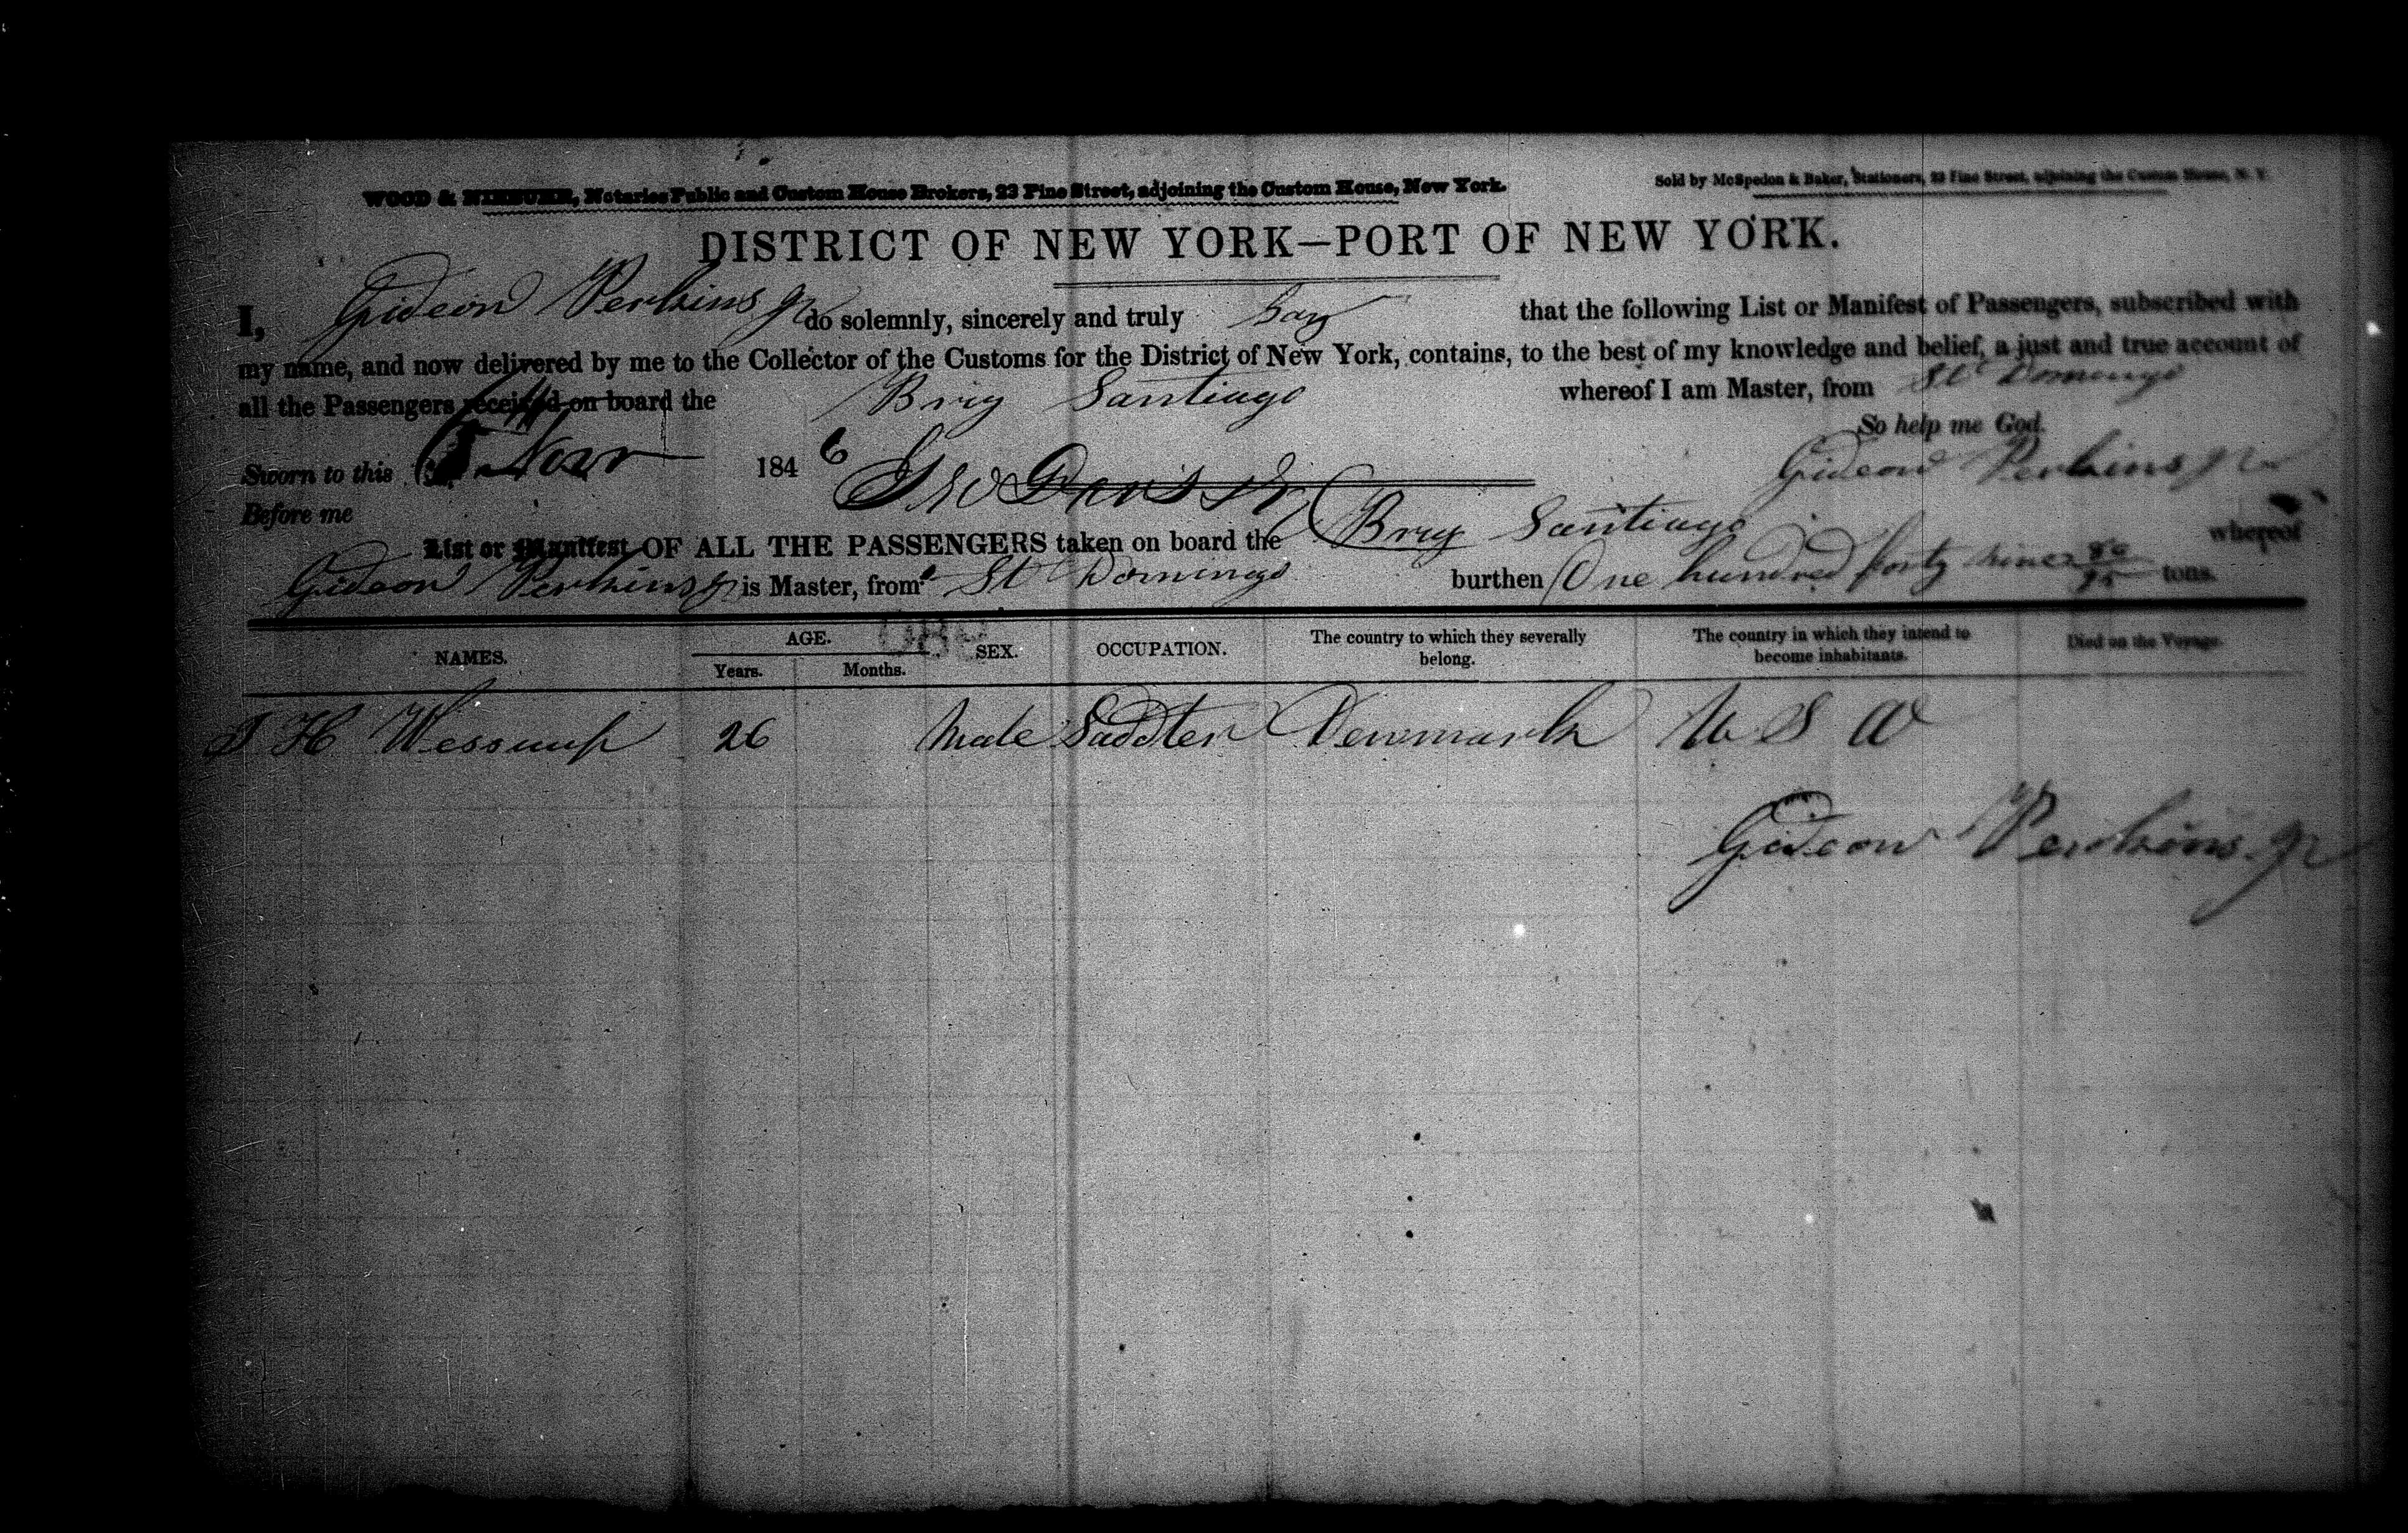 WOOD & NIEBUHR, Notaries Public and Custom House Brokers, 23 Pine Street, adjoining the Custom House, New York.
Sold by McSpedon & Baker, Stationers, 23 Pine Street, adjoining the Custom House, N. Y.
DISTRICT OF NEW YORK—PORT OF NEW YORK.
I, Gideon Perkins Jr do solemnly, sincerely and truly Say that the following List or Manifest of Passengers, subscribed with
my name, and now delivered by me to the Collector of the Customs for the District of New York, contains, to the best of my knowledge and belief, a just and true account of
all the Passengers received on board the Brig Santiago whereof I am Master, from St Domingo
So help me God.
Sworn to this Nov 1846 Gideon Perkins Jr
Before me
List or Manifest OF ALL THE PASSENGERS taken on board the Brig Santiago whereof
Gideon Perkins Jr is Master, from St Domingo burthen One hundred forty nine 86/95 tons.
NAMES. AGE. Years. Months. SEX. OCCUPATION. The country to which they severally belong. The country in which they intend to become inhabitants. Died on the Voyage.
J H Wessup 26 Male Saddler Denmark U S A
Gideon Perkins Jr